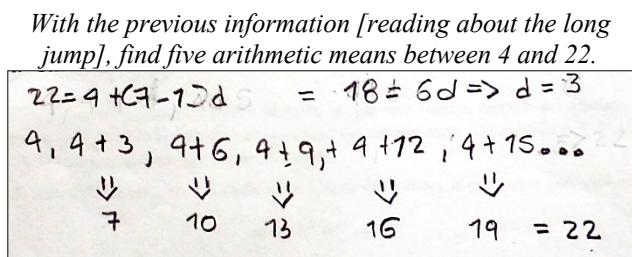 With the previous information [reading about the long
jump], find five arithmetic means between 4 and 22.
22=4+(7-1)d = 18=6d => d=3
4, 4+3, 4+6, 4+9,+ 4+12, 4+15...
⇓ ⇓ ⇓ ⇓ ⇓
7 10 13 16 19 = 22